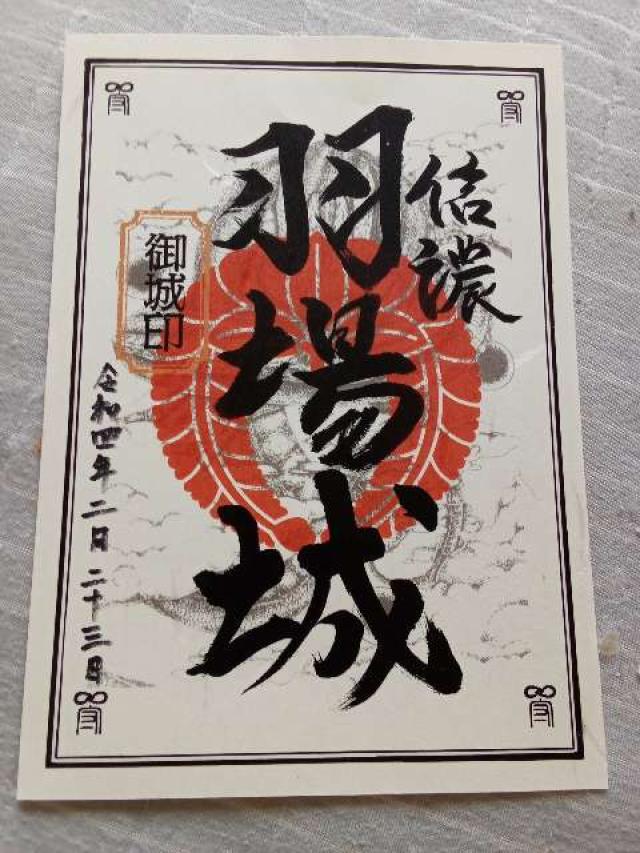 信濃
羽場城
御城印
令和四年二月二十三日